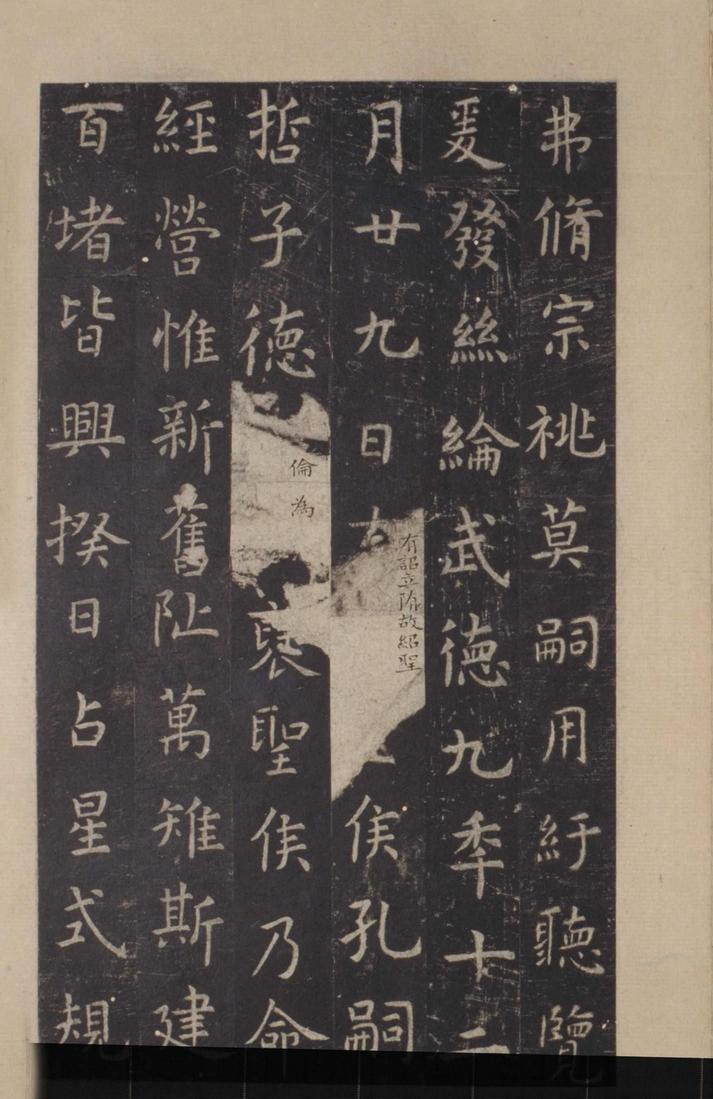 弗脩宗祧莫嗣用紆聽覽
爰發絲綸武德九年十二
月廿九日有
有詔立隋故紹聖
侯孔嗣
哲子德
倫為
襃聖侯乃命
經營惟新舊阯萬雉斯建
百堵皆興揆日占星式規